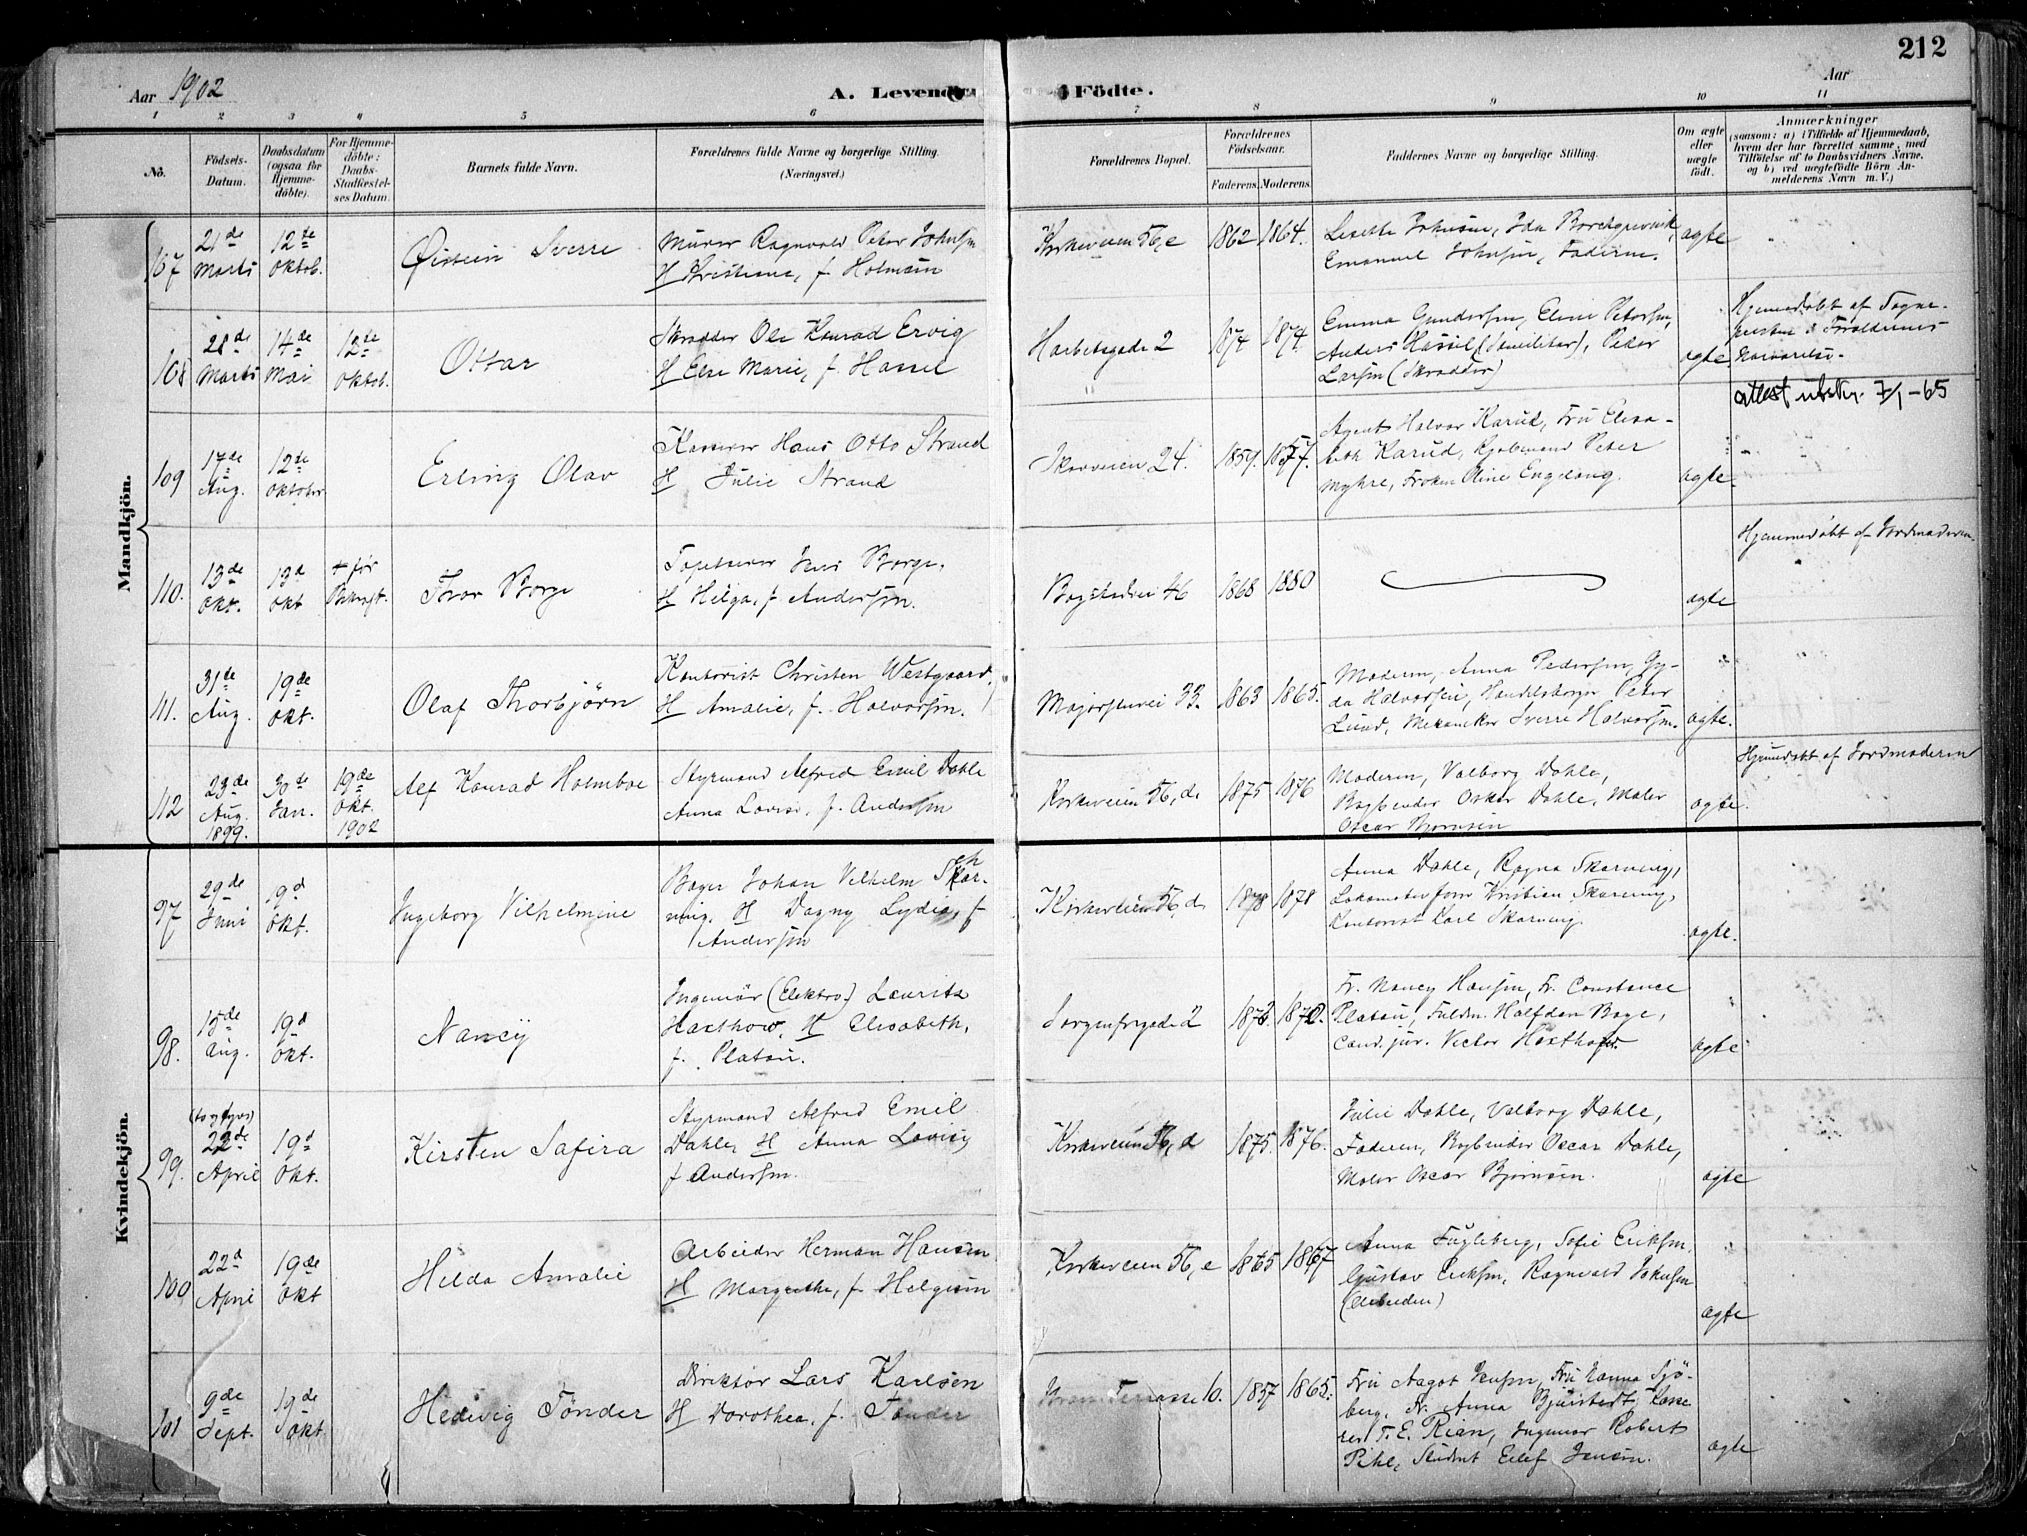 212
Aar 1902
A. Levende
Födte.
Aar
1 2 3 4 5 6 7 8 9 10 11
No.
Födsels-
Datum.
Daabsdatum
(ogsaa for
Hjemme-
döbte).
For Hjemme-
döbte:
Daabs-
Stadfæstel-
ses Datum.
Barnets fulde Navn.
Forældrenes fulde Navne og borgerlige Stilling.
(Næringsvei.)
Forældrenes Bopæl.
Forældrenes
Födselsaar.
Faderens.
Moderens.
Faddernes Navne og borgerlige Stilling.
Om ægte
eller
uægte
födt.
Anmærkninger
(saasom: a) i Tilfælde af Hjemmedaab,
hvem der har forrettet samme, med
Tilföielse af to Daabsvidners Navne,
og b) ved uægtefödte Börn An-
melderens Navn m. V.)
Mandkjön.
107
21de
Marts
12te
Oktob.
Øistein Sverre
Murer Ragnvald Peter Johnsen
H Kristiane, f. Holmsen
Kirkeveien 56, e
1862
1864.
Lisette Johnsen, Ida Borchgrevink,
Emanuel Johnsen, Faderen.
ægte
108
28de
Marts
14de
Mai
12te
Oktob.
Ottar
Skrædder Ole Konrad Ervig
H Else Marie, f. Hassel
Harbitzgade 2
1874
1874
Emma Gundersen, Eline Petersen,
Anders Hassel, Peder
Larsen (Skrædder)
ægte.
Hjemmedøbt af Sogne-
presten i Forældrenes
Nærværelse.
attest utskr. 7/1-65
109
17de
Aug.
12te
Oktober
Erling Olav
Kasserer Hans Otto Strand
H Julie Strand
Skovveien 24.
1859.
1857.
Agent Halvor Karud, Fru Elisa-
beth Karud, Kjøbmand Peter
Myhre, Frøken Oline Engelang.
ægte
110.
13de
Okt.
13d
Okt
+ før
Bekræft.
Thor Borge
Tapetserer Jens Borge,
H Helga, f. Andersen.
Bogstadvei 46
1868
1880
ægte
Hjemmedøbt af Jordmoderen.
111.
31de
Aug.
19de
Okt.
Olaf Thorbjørn
Kontorist Christen Westgaard,
H Amalie, f. Halvorsen.
Majorstuvei 33.
1863
1865.
Moderen, Anna Pedersen, Gy-
da Halvorsen, Handelsborger Peter
Lund, Mekaniker Sverre Halvorsen.
ægte.
112
23de
Aug.
1899.
30te
Jan.
19de
Okt.
1902
Alf Konrad Holmboe
Styrmand Alfred Emil Dahle
Anna Lovise, f. Andersen
Kirkeveien 56, d.
1875
1876
Moderen, Valborg Dahle,
Bogbinder Oskar Dahle, Maler
Oscar Bjørnsen
ægte.
Hjemdøbt af Jordmoderen
Kvindekjön.
97
29de
Juni
9d
Okt.
Ingeborg Vilhelmine
Bager Johan Vilhelm Skar-
ning. H Dagny Lydia, f
Andersen
Kirkeveien 56, d
1878
1878
Anna Dahle, Ragna Skarning,
Lokomotivform Kristian Skarning,
Kontorist Karl Skarning.
ægte.
98.
15de
Aug.
19d
Okt.
Nancy
Ingeniør (Elektro.) Lauritz
Haxthow, H Elisabeth,
f. Platou.
Sorgenfrigade 2
1873.
1872.
Fr. Nancy Hansen, Fr. Constance
Platou, Fuldm. Halfdan Boge,
Cand. jur. Victor Haxthow.
ægte
99.
22de
April
19d
Okt.
Kirsten Safira
Styrmand Alfred Emil
Dahle, H Anna Lovise,
f Andersen.
Kirkeveien 56, d
1875.
1876.
Julie Dahle, Valborg Dahle,
Faderen, Bogbinder Oscar Dahle,
Maler Oscar Bjørnsen.
ægte
100
22d
April
19de
Okt
Helda Amalie
Arbeider Herman Hansen
H Margrethe, f. Helgesen
Kirkeveien 56, e
1865
1867
Anna Fugleberg, Sofie Eriksen,
Gustav Eriksen, Ragnvald Johnsen
(Arbeider)
ægte
101
9de
Sept.
19de
Okt.
Hedvig Tönder
Direktör Lars Karlsen
H Dorothea, f. Tönder
Terrasse 10.
1857
1865.
Fru Aagot Jensen, Fru Hanna Sjö-
berg, Fr. Anna Bjurstedt, Kasse-
rer T. E. Rian, Ingeniør Robert
Pihl, Student Eilef Jensen.
ægte